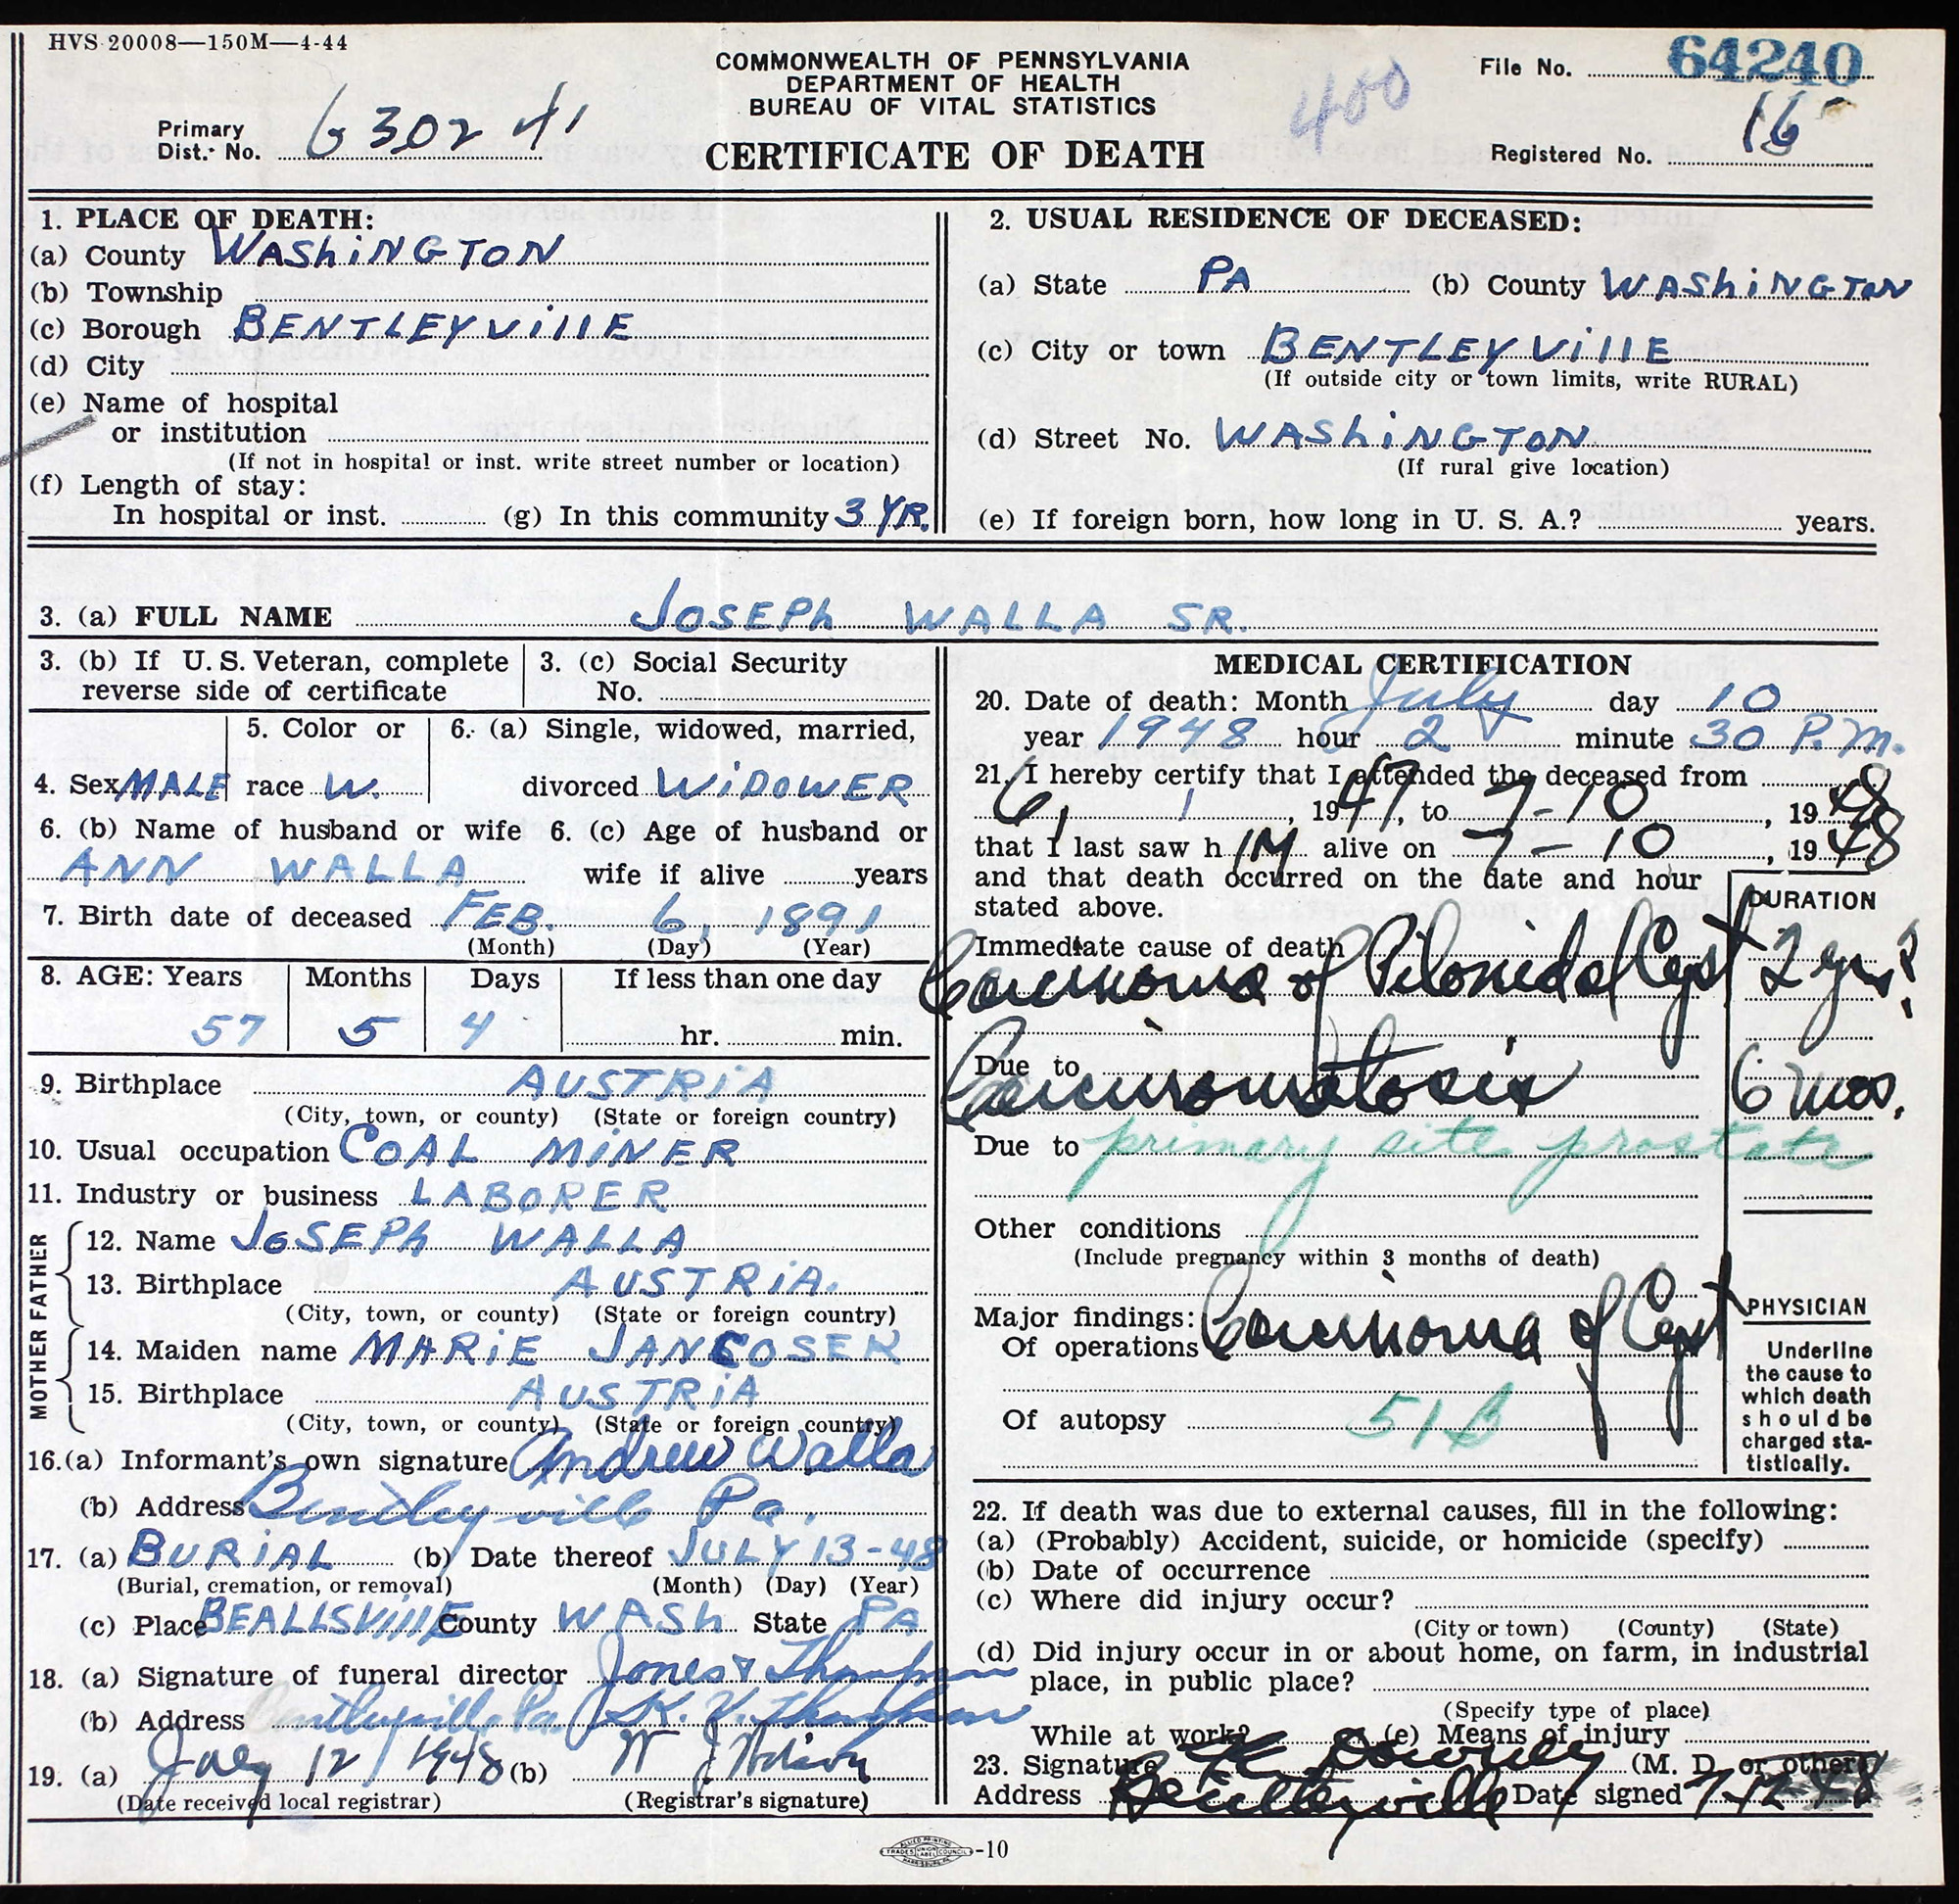 HVS 20008—150M—4-44
COMMONWEALTH OF PENNSYLVANIA
DEPARTMENT OF HEALTH
BUREAU OF VITAL STATISTICS
CERTIFICATE OF DEATH
400
File No. 64240
Primary
Dist. No. 6302 41
Registered No. 16
1. PLACE OF DEATH:
(a) County WAShiNGTON
(b) Township
(c) Borough BENTLEYVillE
(d) City
(e) Name of hospital
or institution
(If not in hospital or inst. write street number or location)
(f) Length of stay:
In hospital or inst. (g) In this community 3 YR.
2. USUAL RESIDENCE OF DECEASED:
(a) State PA (b) County WAShiNGTON
(c) City or town BENTLEYVillE
(If outside city or town limits, write RURAL)
(d) Street No. WAShiNGTON
(If rural give location)
(e) If foreign born, how long in U. S. A.? years.
3. (a) FULL NAME JOSEPh WALLA SR.
3. (b) If U. S. Veteran, complete
reverse side of certificate
3. (c) Social Security
No.
4. Sex MALE
5. Color or
race W.
6. (a) Single, widowed, married,
divorced WiDOWER
6. (b) Name of husband or wife
ANN WALLA
6. (c) Age of husband or
wife if alive years
7. Birth date of deceased FEB. 6, 1891
(Month) (Day) (Year)
8. AGE: Years Months Days If less than one day
57 5 4 hr. min.
9. Birthplace AUSTRiA
(City, town, or county) (State or foreign country)
10. Usual occupation COAL MiNER
11. Industry or business LABORER
FATHER
12. Name JOSEPh WALLA
13. Birthplace AUSTRiA.
(City, town, or county) (State or foreign country)
MOTHER
14. Maiden name MARiE JANCOSEK
15. Birthplace AUSTRiA
(City, town, or county) (State or foreign country)
16.(a) Informant's own signature Andrew Walla
(b) Address Bentleyville Pa.
17. (a) BURiAL (b) Date thereof JULY 13-48
(Burial, cremation, or removal) (Month) (Day) (Year)
(c) Place BEALLSVillE County WASh State PA
18. (a) Signature of funeral director Jones & Thompson
(b) Address Bentleyville Pa. K. V. Thompson
19. (a) July 12, 1948 (b) W J
(Date received local registrar) (Registrar's signature)
MEDICAL CERTIFICATION
20. Date of death: Month July day 10
year 1948 hour 2 minute 30 P.M.
21. I hereby certify that I attended the deceased from
6, 1, 1947, to 7-10, 1948
that I last saw h IM alive on 7-10, 1948
and that death occurred on the date and hour
stated above.
DURATION
Immediate cause of death
Carcinoma of Pilonidal Cyst 2 yrs?
Due to
Carcinomatosis 6 mos.
Due to primary site prostate
Other conditions
(Include pregnancy within 3 months of death)
Major findings:
Of operations Carcinoma of Cyst
Of autopsy 51B
PHYSICIAN
Underline
the cause to
which death
should be
charged sta-
tistically.
22. If death was due to external causes, fill in the following:
(a) (Probably) Accident, suicide, or homicide (specify)
(b) Date of occurrence
(c) Where did injury occur?
(City or town) (County) (State)
(d) Did injury occur in or about home, on farm, in industrial
place, in public place?
(Specify type of place)
While at work? (e) Means of injury
23. Signature Downey (M. D. or other)
Address Bentleyville Date signed 7-12-48
-10